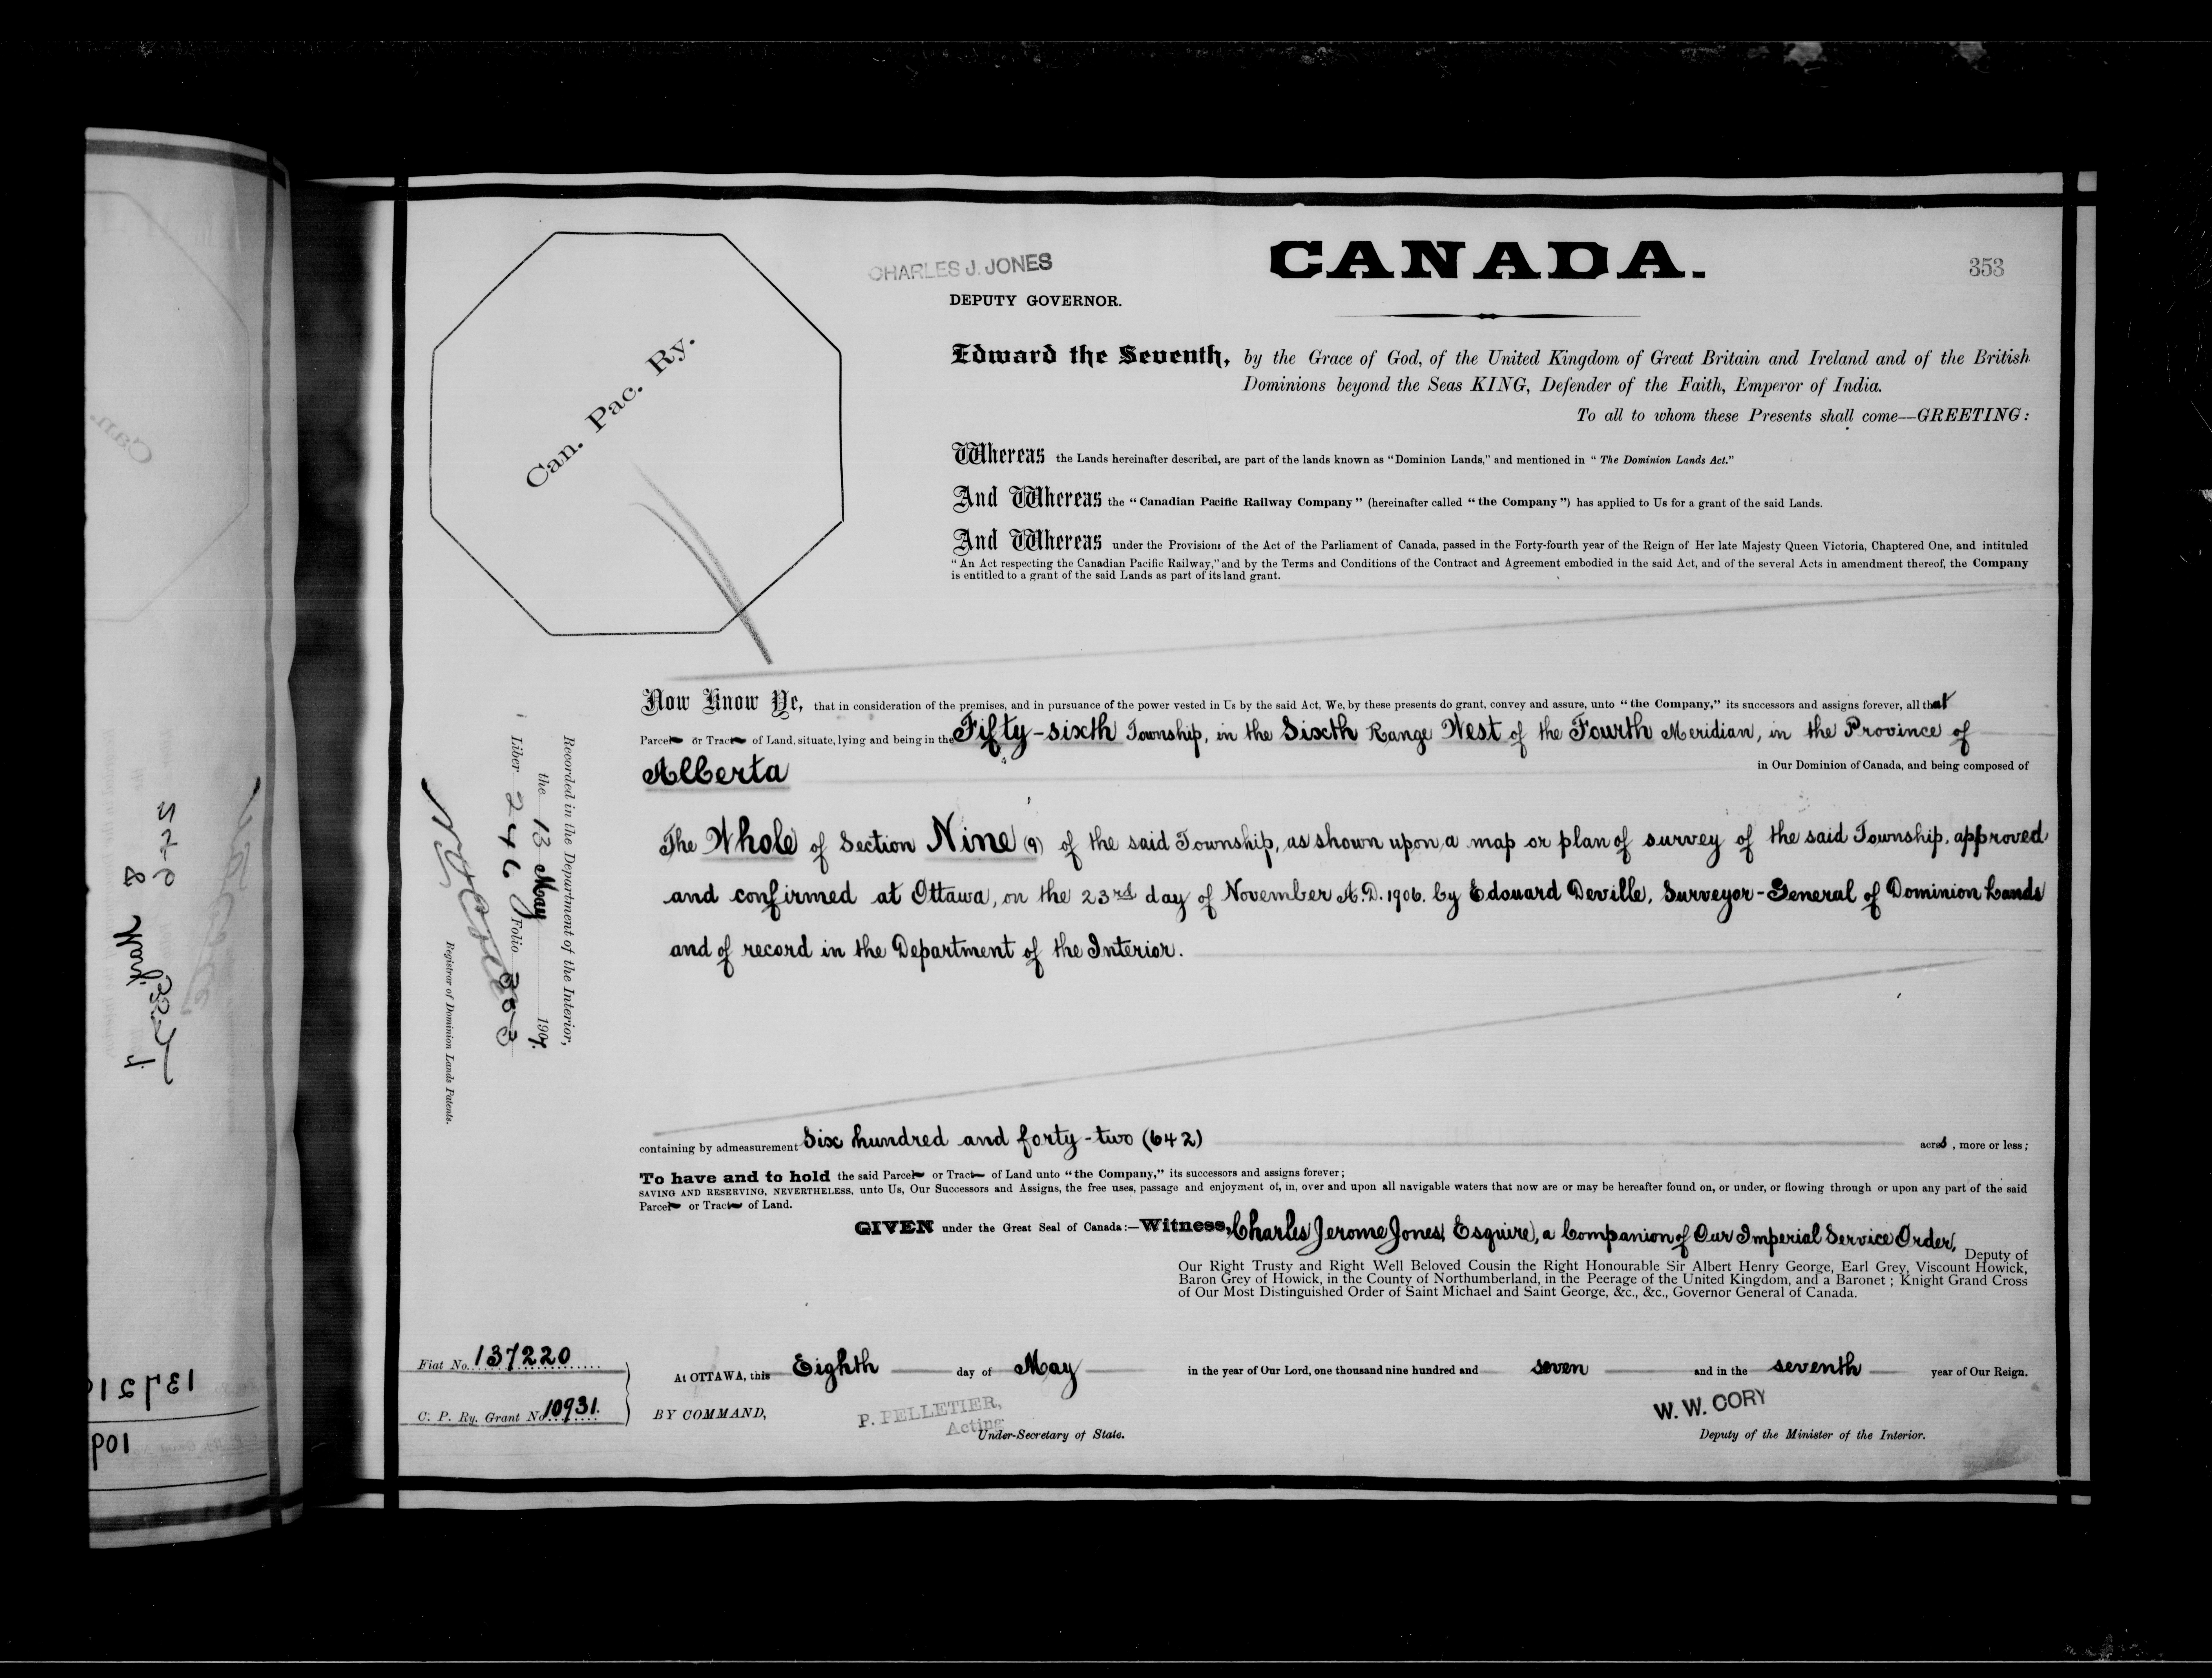 CHARLES J. JONES
DEPUTY GOVERNOR.
CANADA.
353
Can. Pac. Ry.
Edward the Seventh, by the Grace of God, of the United Kingdom of Great Britain and Ireland and of the British
Dominions beyond the Seas KING, Defender of the Faith, Emperor of India.
To all to whom these Presents shall come—GREETING:
Whereas the Lands hereinafter described, are part of the lands known as "Dominion Lands," and mentioned in "The Dominion Lands Act."
And Whereas the "Canadian Pacific Railway Company" (hereinafter called "the Company") has applied to Us for a grant of the said Lands.
And Whereas under the Provisions of the Act of the Parliament of Canada, passed in the Forty-fourth year of the Reign of Her late Majesty Queen Victoria, Chaptered One, and intituled
"An Act respecting the Canadian Pacific Railway," and by the Terms and Conditions of the Contract and Agreement embodied in the said Act, and of the several Acts in amendment thereof, the Company
is entitled to a grant of the said Lands as part of its land grant.
Now Know Ye, that in consideration of the premises, and in pursuance of the power vested in Us by the said Act, We, by these presents do grant, convey and assure, unto "the Company," its successors and assigns forever, all that
Parcel or Tract of Land, situate, lying and being in the Fifty-sixth Township, in the Sixth Range West of the Fourth Meridian, in the Province of
Alberta in Our Dominion of Canada, and being composed of
The Whole of Section Nine (9) of the said Township, as shown upon a map or plan of survey of the said Township, approved
and confirmed at Ottawa, on the 23rd day of November A.D. 1906. by Edouard Deville, Surveyor-General of Dominion Lands
and of record in the Department of the Interior.
Recorded in the Department of the Interior,
the 13 May 1907.
Liber 246 Folio 353
Registrar of Dominion Lands Patents.
containing by admeasurement Six hundred and forty-two (642) acres, more or less;
To have and to hold the said Parcel or Tract of Land unto "the Company," its successors and assigns forever;
SAVING AND RESERVING, NEVERTHELESS, unto Us, Our Successors and Assigns, the free uses, passage and enjoyment of, in, over and upon all navigable waters that now are or may be hereafter found on, or under, or flowing through or upon any part of the said
Parcel or Tract of Land.
GIVEN under the Great Seal of Canada:—Witness, Charles Jerome Jones, Esquire, a Companion of Our Imperial Service Order, Deputy of
Our Right Trusty and Right Well Beloved Cousin the Right Honourable Sir Albert Henry George, Earl Grey, Viscount Howick,
Baron Grey of Howick, in the County of Northumberland, in the Peerage of the United Kingdom, and a Baronet; Knight Grand Cross
of Our Most Distinguished Order of Saint Michael and Saint George, &c., &c., Governor General of Canada.
Fiat No. 137220
C. P. Ry. Grant No. 10931.
At OTTAWA, this Eighth day of May in the year of Our Lord, one thousand nine hundred and seven and in the seventh year of Our Reign.
BY COMMAND,
P. PELLETIER,
Acting
Under-Secretary of State.
W. W. CORY
Deputy of the Minister of the Interior.